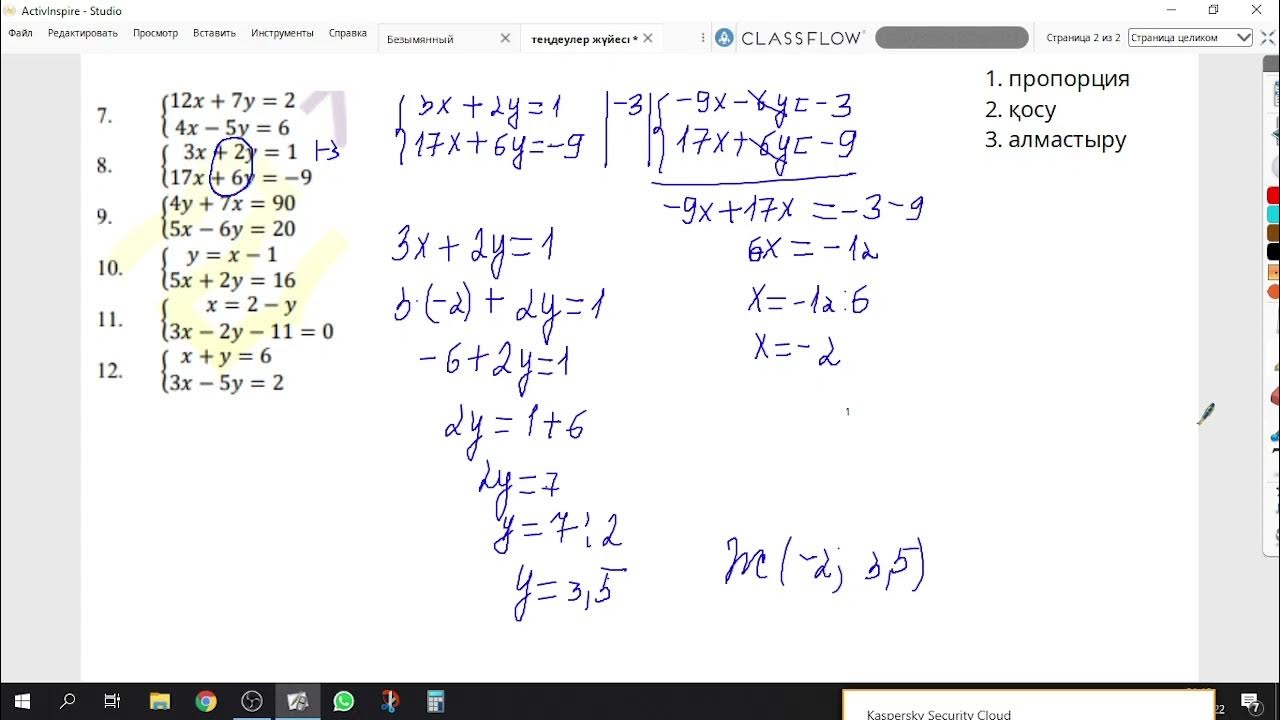 ActivInspire - Studio
Файл Редактировать Просмотр Вставить Инструменты Справка
Безымянный
теңдеулер жүйесі *
CLASSFLOW
Страница 2 из 2
Страница целиком
1. пропорция
2. қосу
3. алмастыру
7. 12x + 7y = 2
4x − 5y = 6
8. 3x + 2y = 1 |-3
17x + 6y = −9
9. 4y + 7x = 90
5x − 6y = 20
10. y = x − 1
5x + 2y = 16
11. x = 2 − y
3x − 2y − 11 = 0
12. x + y = 6
3x − 5y = 2
3x + 2y = 1 | -3
17x + 6y = -9
-9x - 6y = -3
17x + 6y = -9
-9x + 17x = -3 - 9
6x = -12
x = -12 : 6
x = -2
3x + 2y = 1
3·(-2) + 2y = 1
-6 + 2y = 1
2y = 1 + 6
2y = 7
y = 7 : 2
y = 3,5
Ж(-2; 3,5)
1
22
7
Kaspersky Security Cloud